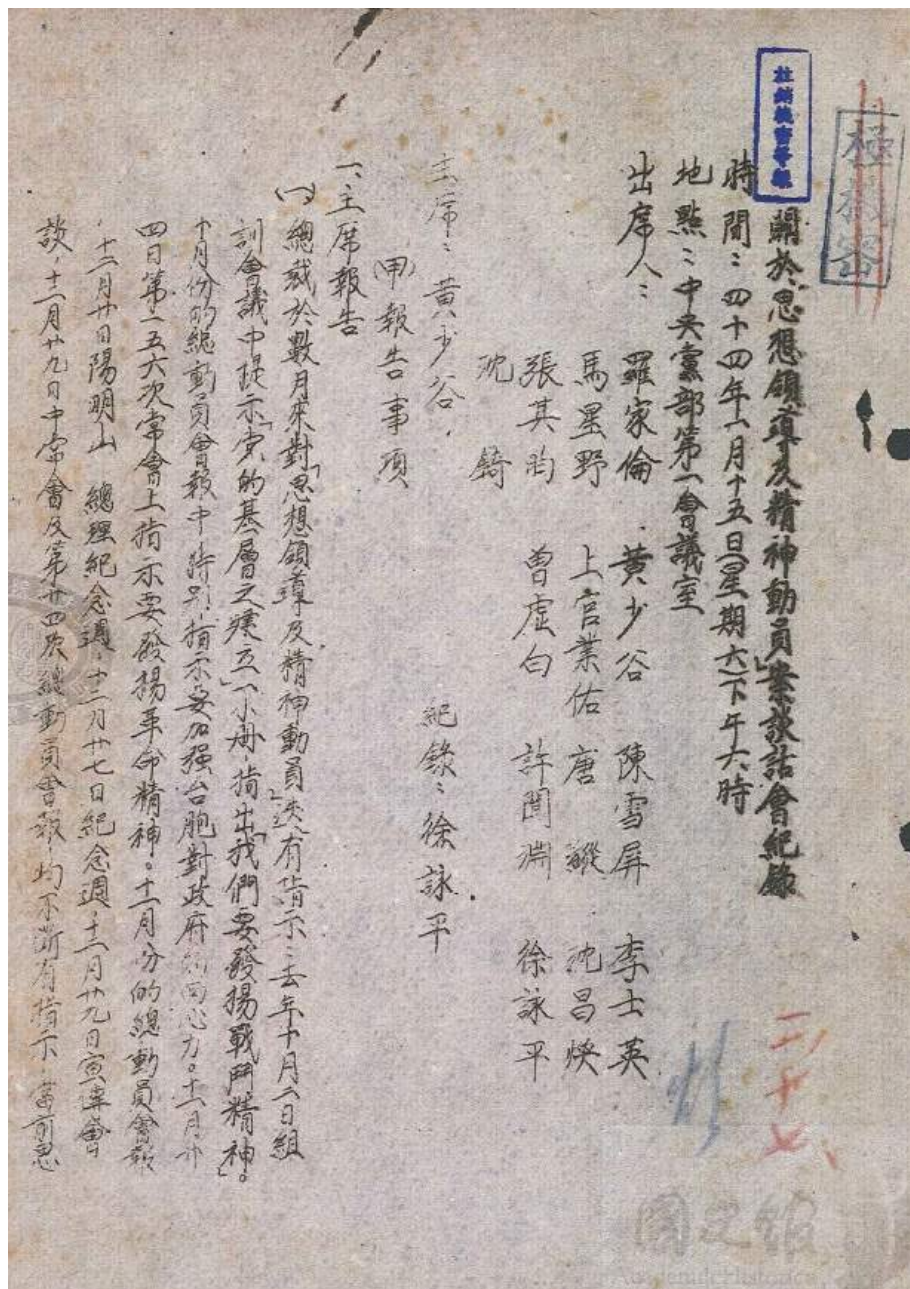 極機密
註銷機密等級
關於「思想領導及精神動員」案談話會紀錄
時間：四十四年一月十五日(星期六)下午六時
地點：中央黨部第一會議室
出席人：羅家倫 黃少谷 陳雪屏 李士英
馬星野 上官業佑 唐縱 沈昌煥
張其昀 曾虛白 許聞淵 徐詠平
沈錡
主席：黃少谷 紀錄：徐詠平
(甲)報告事項
一、主席報告
(一)總裁於數月來對「思想領導及精神動員」迭有指示：去年十月二日組
訓會議中提示「黨的基層之建立」小冊，指出「我們要發揚戰鬥精神」。
十月份的總動員會報中特別指示要加強台胞對政府的向心力。十一月廿
四日第一五六次常會上指示要發揚革命精神。十一月份的總動員會報
十二月廿日陽明山 總理紀念週，十二月廿七日紀念週，十二月廿九日宣達會
談，十二月廿九日中常會及第廿四次總動員會報，均不斷有指示，當前思
二、廿七、
國史館
Academia Historica